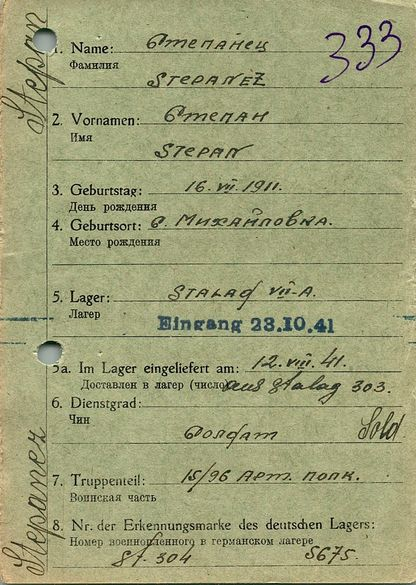 333
Stepan
1. Name: Степанец
Фамилия
STEPANEZ
2. Vornamen: Степан
Имя
STEPAN
3. Geburtstag: 16. VII. 1911.
День рождения
4. Geburtsort: с. Михайловка.
Место рождения
5. Lager: STALAG VII-A.
Лагер
Eingang 23.10.41
5a. Im Lager eingeliefert am: 12. VIII. 41.
Доставлен в лагер (число) aus Stalag 303.
6. Dienstgrad:
Чин
Солдат Sold
7. Truppenteil: 15/96 Арт. полк.
Воинская часть
8. Nr. der Erkennungsmarke des deutschen Lagers:
Номер военнопленного в германском лагере
St. 304 5675.
Stepanez